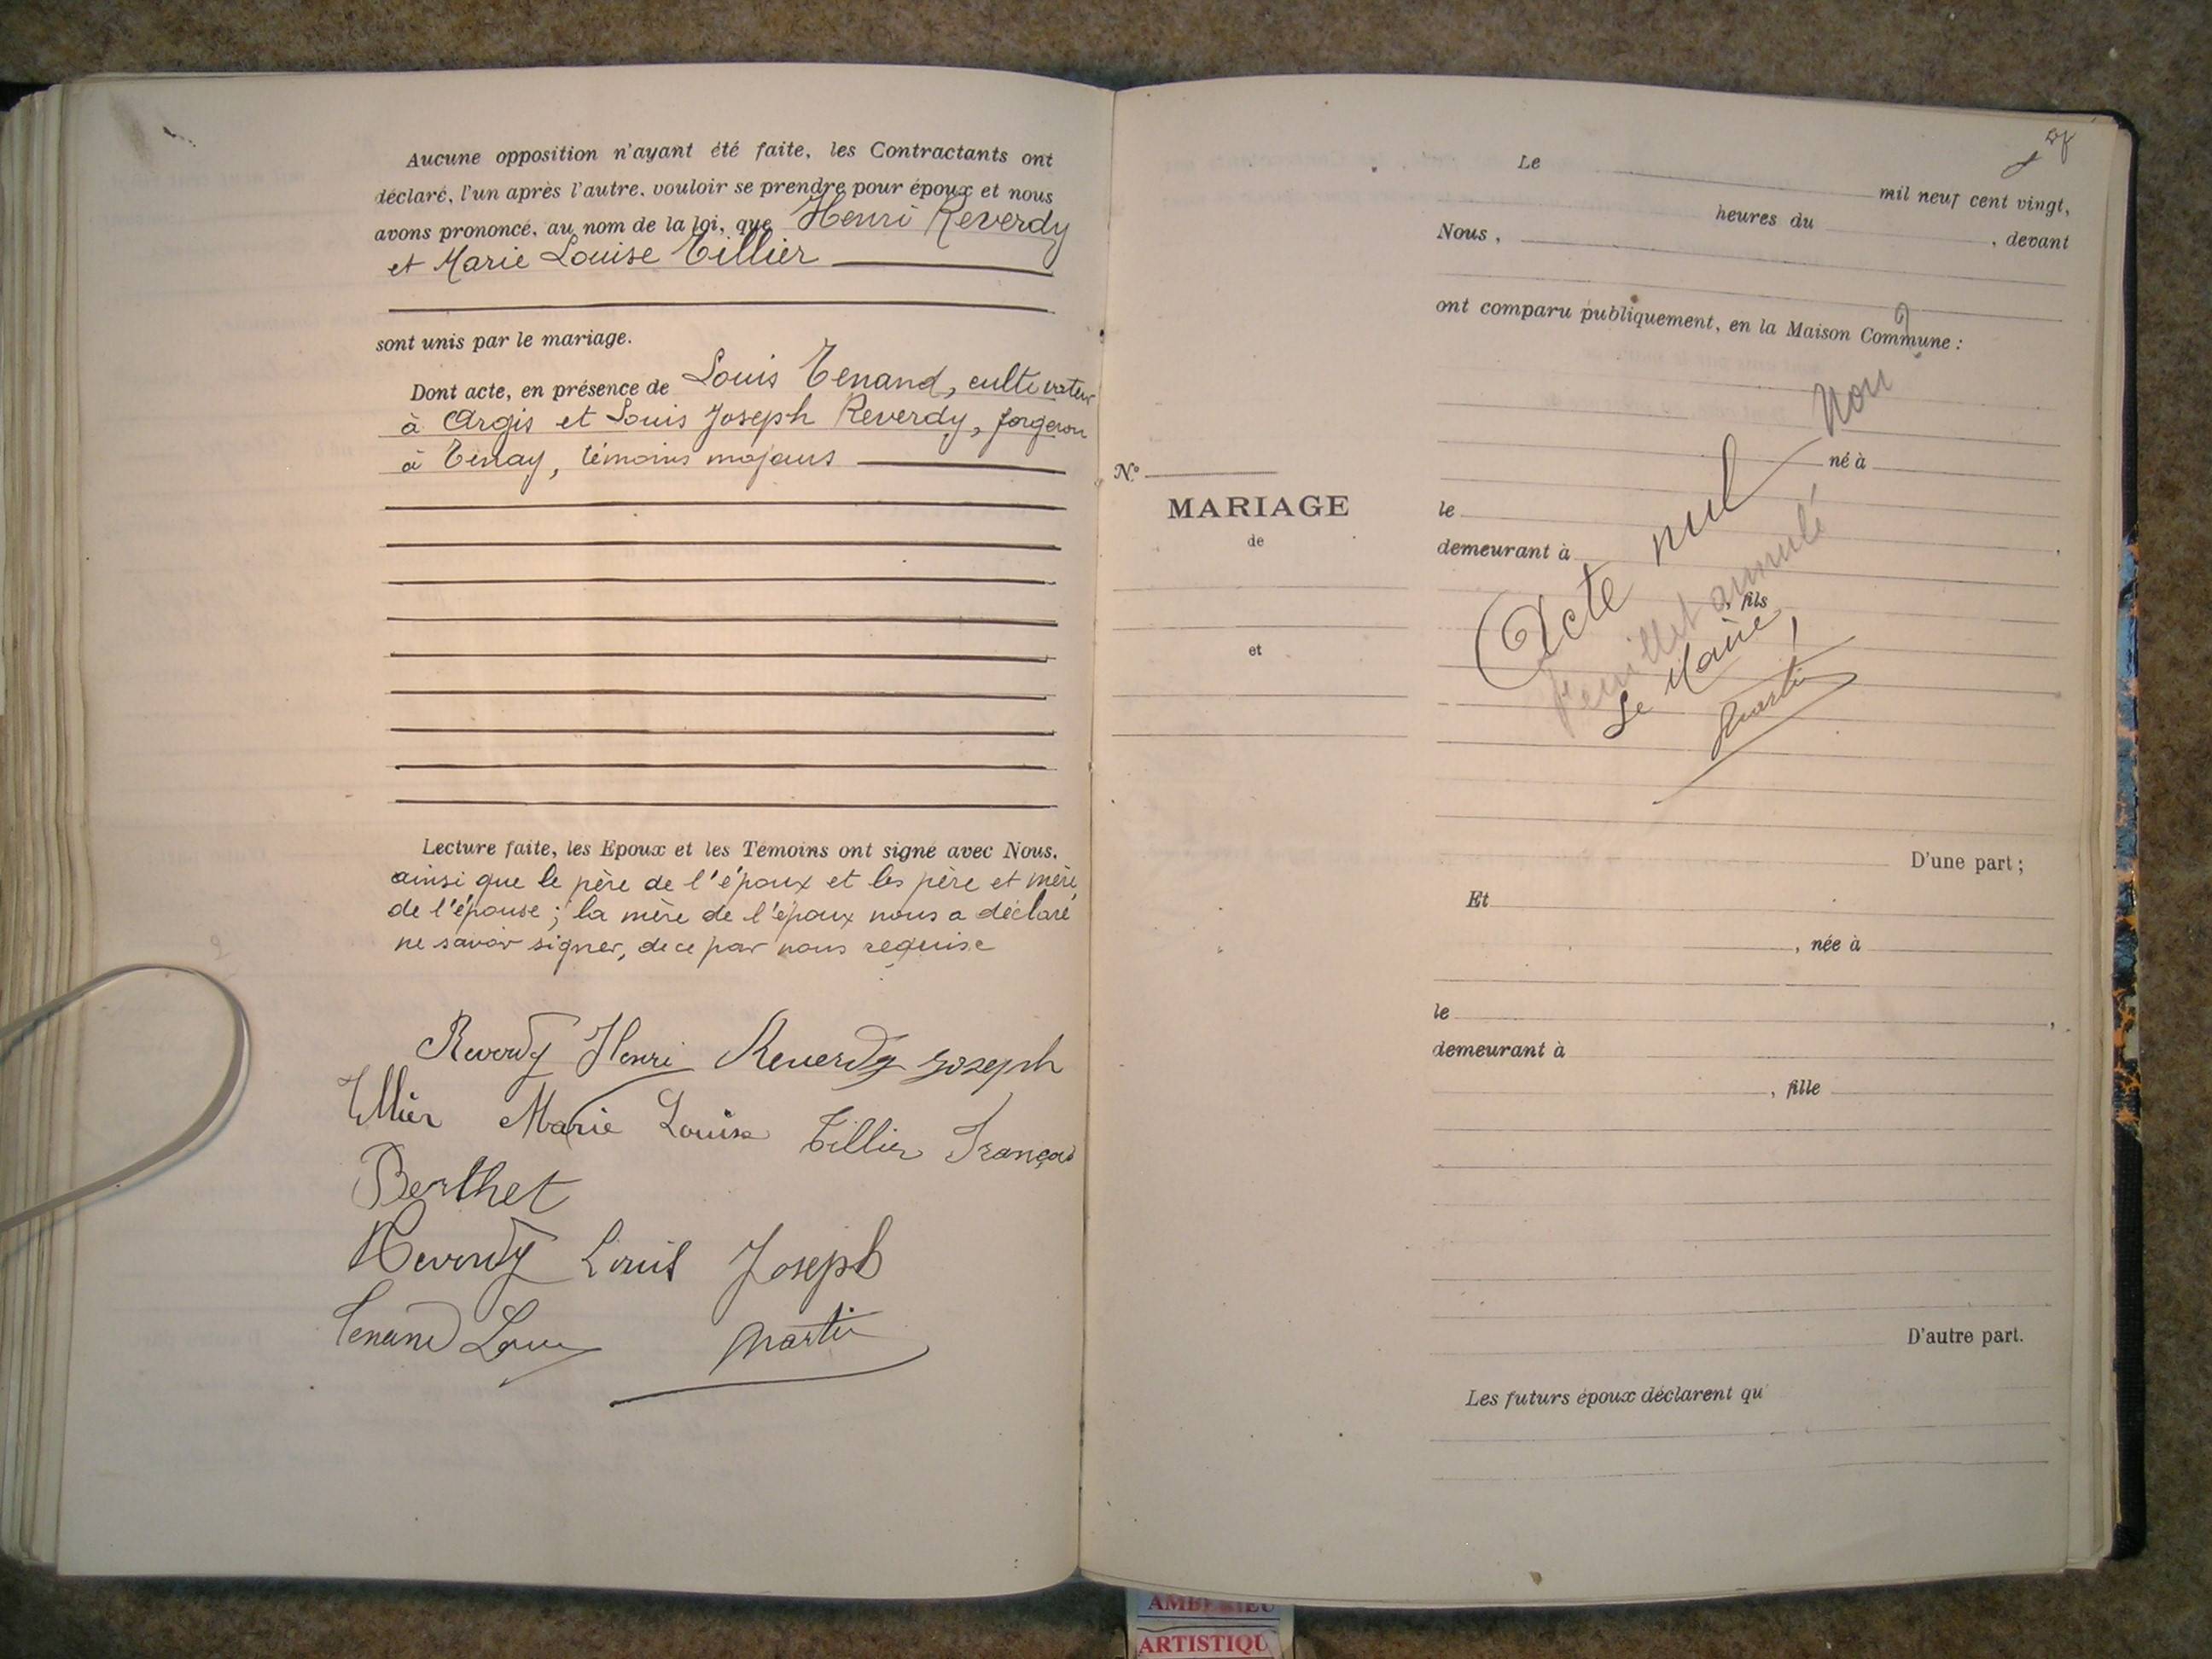 Aucune opposition n'ayant été faite, les Contractants ont
déclaré, l'un après l'autre, vouloir se prendre pour époux et nous
avons prononcé, au nom de la loi, que Henri Reverdy
et Marie Louise Tillier
sont unis par le mariage.
Dont acte, en présence de Louis Tenand, cultivateur
à Argis et Louis Joseph Reverdy, forgeron
à Tenay, témoins majeurs
Lecture faite, les Epoux et les Témoins ont signé avec Nous,
ainsi que le père de l'époux et les père et mère
de l'épouse ; la mère de l'époux nous a déclaré
ne savoir signer, de ce par nous requise
Reverdy Henri Reverdy Joseph
Tillier Marie Louise Tillier François
Berthet
Reverdy Louis Joseph
Tenand Louis Martin
Le
mil neuf cent vingt,
heures du , devant
Nous ,
ont comparu publiquement, en la Maison Commune :
Non
né à
N°
MARIAGE
de
et
le
demeurant à
, fils
Acte nul
feuillet annulé
Le Maire,
Martin
D'une part ;
Et
, née à
le
demeurant à
, fille
D'autre part.
Les futurs époux déclarent qu'
AMBERIEU
ARTISTIQU